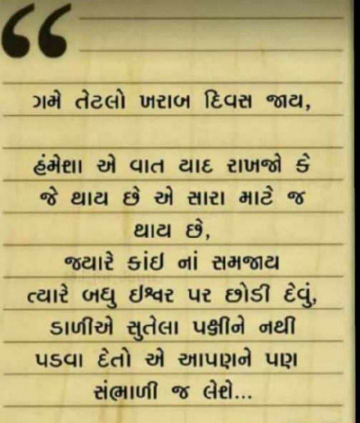 ગમે તેટલો ખરાબ દિવસ જાય,
હંમેશા એ વાત યાદ રાખજો કે
જે થાય છે એ સારા માટે જ
થાય છે,
જ્યારે કાંઇ નાં સમજાય
ત્યારે બધુ ઇશ્વર પર છોડી દેવું,
ડાળીએ સુતેલા પક્ષીને નથી
પડવા દેતો એ આપણને પણ
સંભાળી જ લેશે...